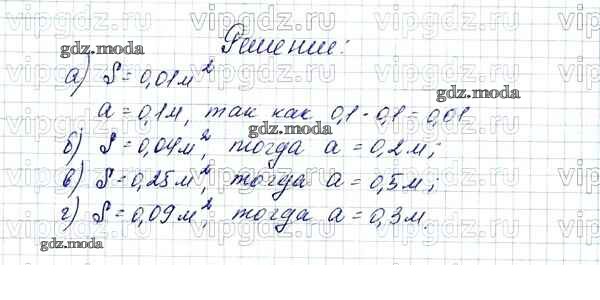 Решение:
а) S = 0,01 м²
a = 0,1 м, так как 0,1 · 0,1 = 0,01
б) S = 0,04 м², тогда a = 0,2 м;
в) S = 0,25 м², тогда a = 0,5 м;
г) S = 0,09 м², тогда a = 0,3 м.
gdz.moda
gdz.moda
gdz.moda
gdz.moda
vipgdz.ru vipgdz.ru vipgdz.ru